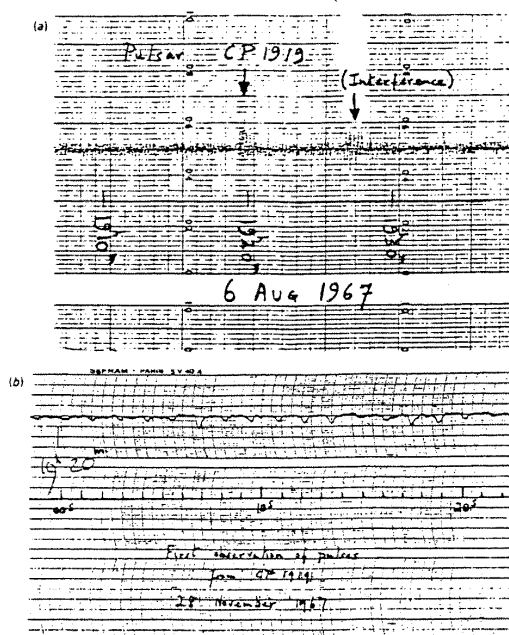 (a)
Pulsar CP 1919
(Interference)
1910 1920 1930
6 AUG 1967
(b)
19h 20m
00s 10s 20s
First observation of pulses
from CP 1919.
28 November 1967